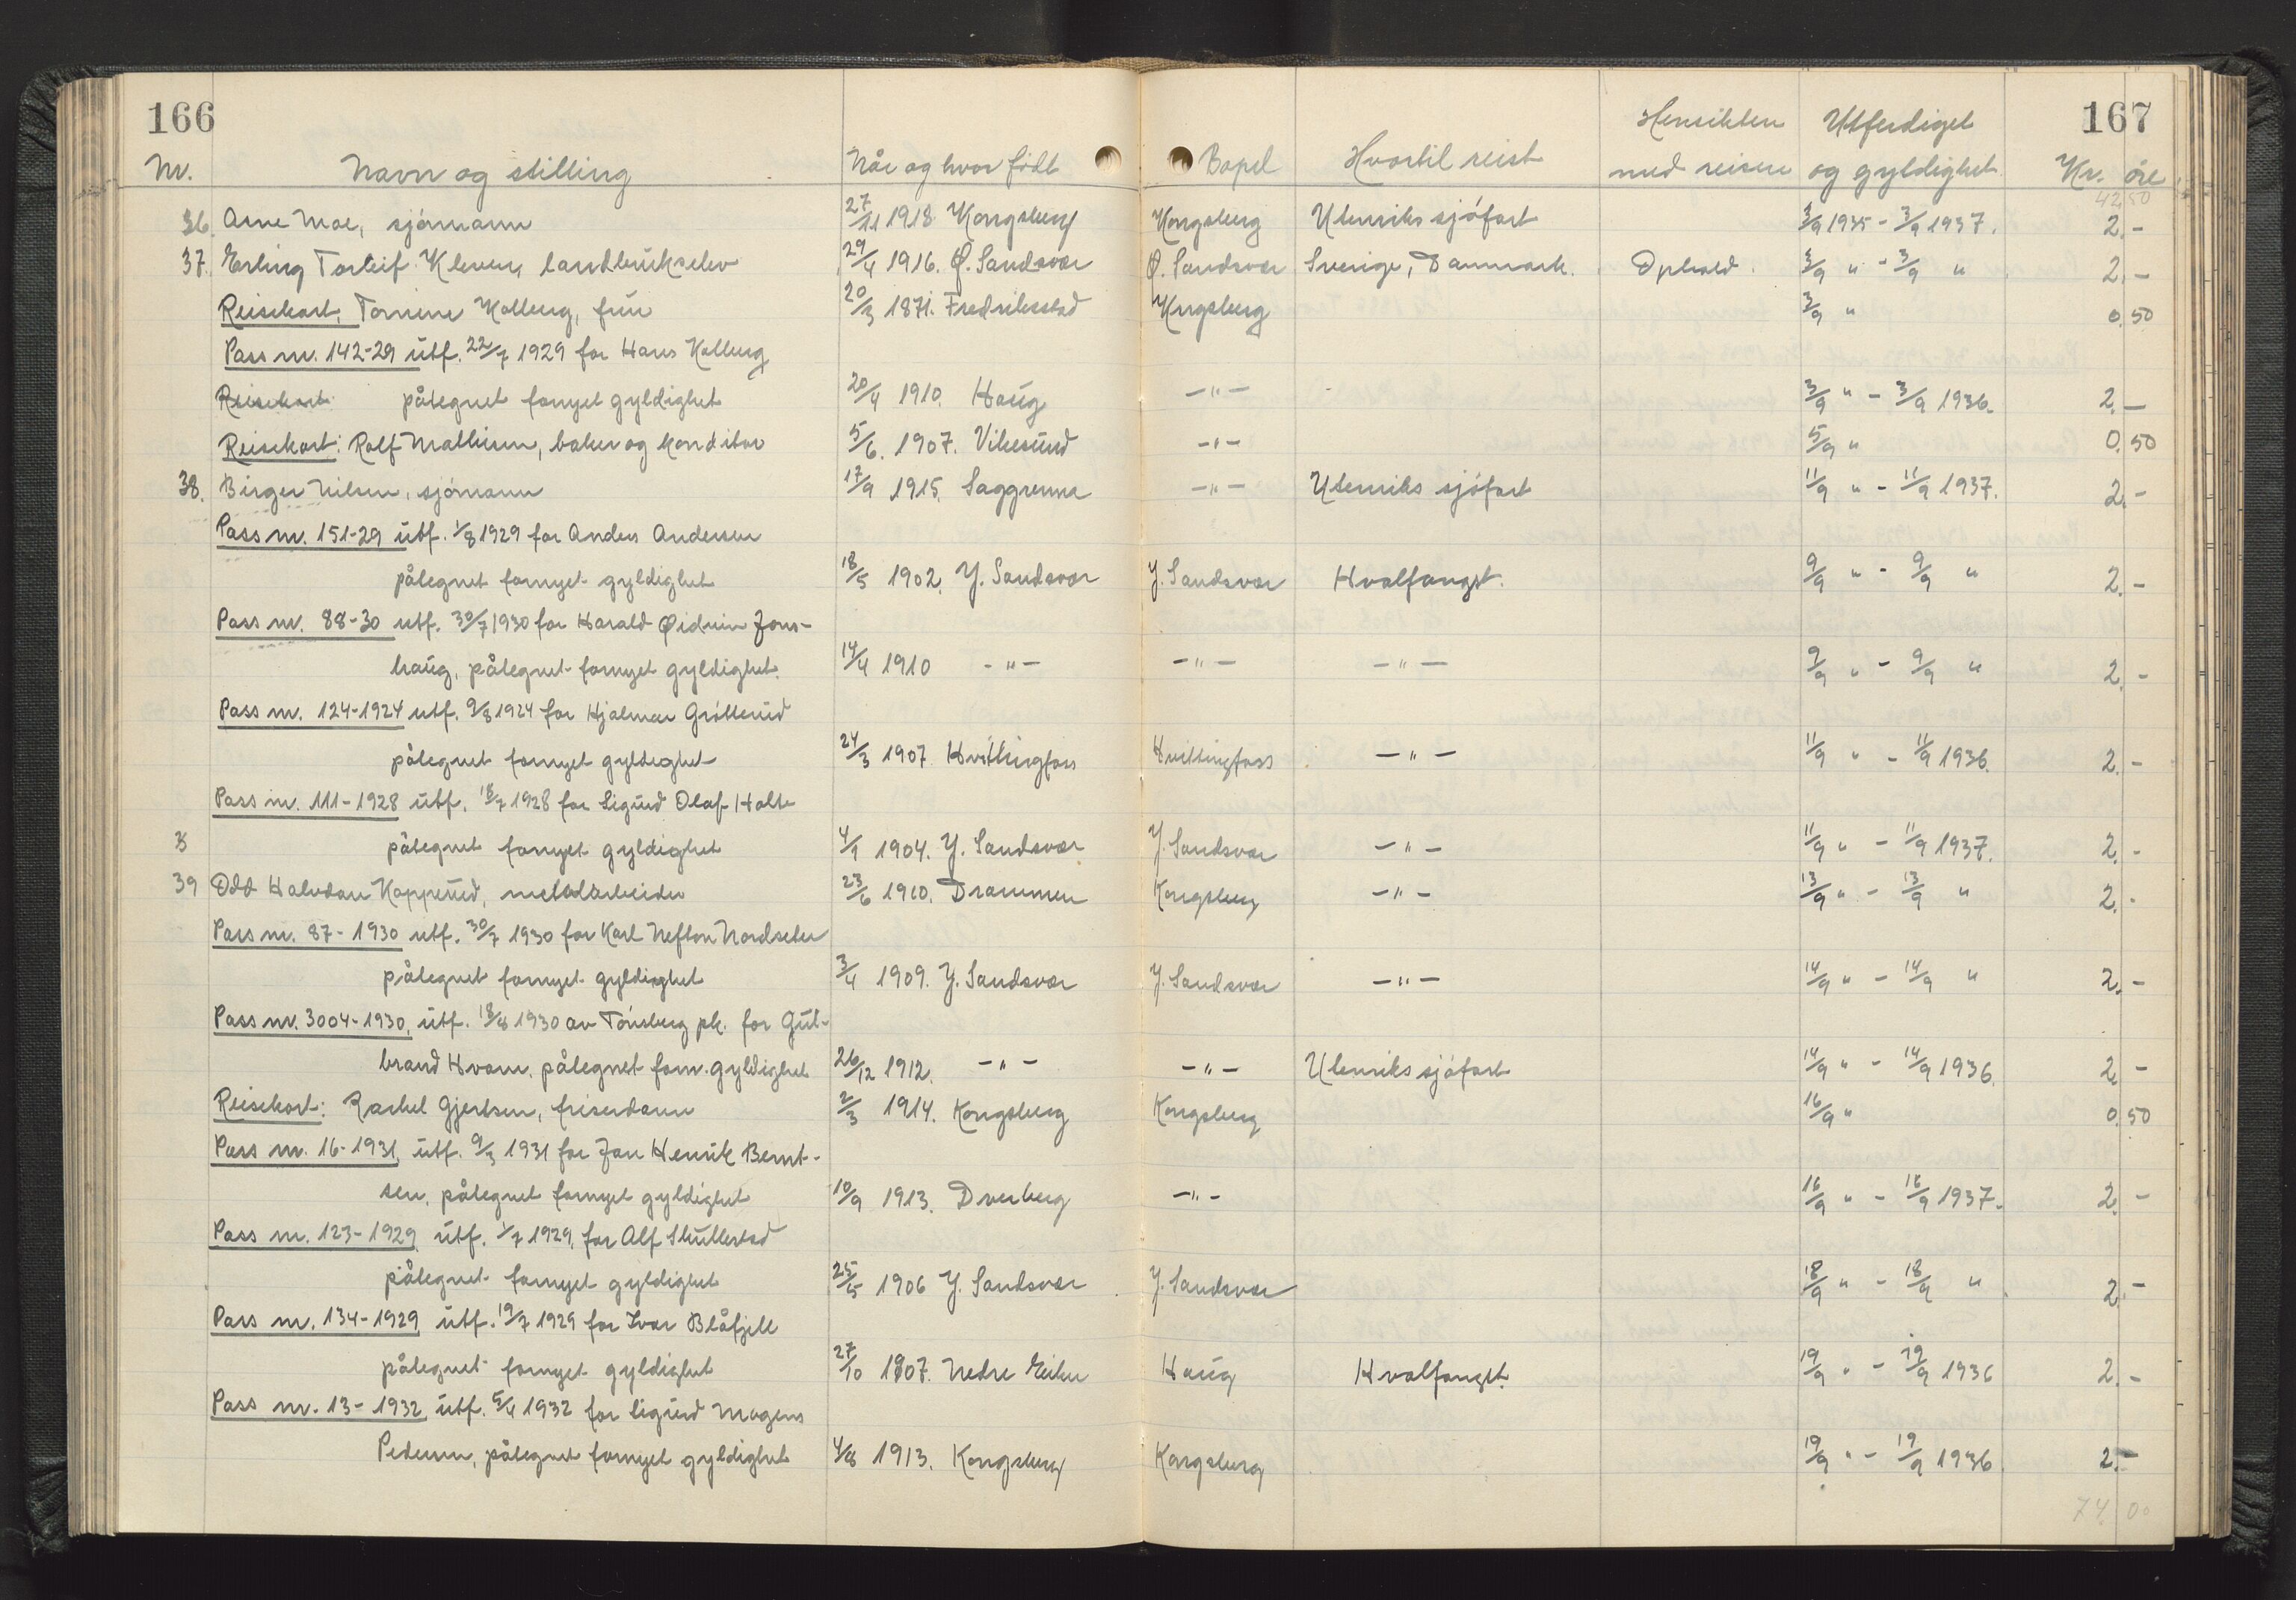 166
167
Nr. Navn og stilling Når og hvor født Bopel Hvortil reist Hensikten med reisen Utferdiget og gyldighet Kr. øre
42 50
36. Arne Moe, sjømann 27/11 1918 Kongsberg Kongsberg Utenriks sjøfart 3/9 1935 - 3/9 1937. 2.-
37. Erling Torleif Kleven, landbrukselev 29/4 1916. Ø. Sandsvær Ø. Sandsvær Sverige, Danmark. Ophold. 3/9 " - 3/9 " 2.-
Reisekort: Tomine Kolberg, frue 20/3 1871. Fredriksstad Kongsberg 3/9 " 0.50
Pass nr. 142-29 utf. 22/7 1929 for Hans Kolberg
Reisekort påtegnet fornyet gyldighet 20/4 1910. Haug -"- 3/9 " - 3/9 1936. 2.-
Reisekort: Rolf Mathisen, baker og konditor 5/6. 1907. Vikesund -"- 5/9 " 0.50
38. Birger Nilsen, sjømann 17/9 1915. Saggrenna -"- Utenriks sjøfart 11/9 " - 11/9 1937. 2.-
Pass nr. 151-29 utf. 1/8 1929 for Anders Andersen
påtegnet fornyet gyldighet 18/5 1902. Y. Sandsvær Y. Sandsvær Hvalfangst. 9/9 " - 9/9 " 2.-
Pass nr. 88-30 utf. 30/7 1930 for Harald Øidvin Jons-
haug, påtegnet fornyet gyldighet. 14/4 1910 -"- -"- -"- 9/9 " - 9/9 " 2.-
Pass nr. 124-1924 utf. 9/8 1924 for Hjalmar Grøtterud
påtegnet fornyet gyldighet 24/3 1907. Hvittingfoss Hvittingfoss -"- 11/9 " - 11/9 1936. 2.-
Pass nr. 111-1928 utf. 18/7 1928 for Sigurd Olaf Holte
påtegnet fornyet gyldighet 4/9 1904. Y. Sandsvær Y. Sandsvær -"- 11/9 " - 11/9 1937. 2.-
39 Odd Halvdan Kopperud, metalarbeider 23/6 1910. Drammen Kongsberg -"- 13/9 " - 13/9 " 2.-
Pass nr. 87-1930 utf. 30/7 1930 for Karl Neften Nordseter
påtegnet fornyet gyldighet 3/4 1909. Y. Sandsvær Y. Sandsvær -"- 14/9 " - 14/9 " 2.-
Pass nr. 3004-1930, utf. 18/8 1930 av Tønsberg pk. for Gul-
brand Hvam, påtegnet forn. gyldighet 26/12 1912. -"- -"- Utenriks sjøfart 14/9 " - 14/9 1936. 2.-
Reisekort: Rachel Gjertsen, friserdame 2/3 1914. Kongsberg Kongsberg 16/9 " 0.50
Pass nr. 16-1931, utf. 9/3 1931 for Jan Henrik Bernt-
sen, påtegnet fornyet gyldighet 10/9 1913. Dverberg -"- 16/9 " - 16/9 1937. 2.-
Pass nr. 123-1929 utf. 1/7 1929, for Alf Skullestad
påtegnet fornyet gyldighet 25/5 1906 Y. Sandsvær Y. Sandsvær 18/9 " - 18/9 " 2.-
Pass nr. 134-1929 utf. 19/7 1929 for Ivar Blåfjell
påtegnet fornyet gyldighet 27/10 1907. Nedre Eiker Haug Hvalfangst. 19/9 " - 19/9 1936 2.-
Pass nr. 13-1932 utf. 5/4 1932 for Sigurd Magens
Pedersen, påtegnet fornyet gyldighet 4/8 1913. Kongsberg Kongsberg 19/9 " - 19/9 1936. 2.-
74.00